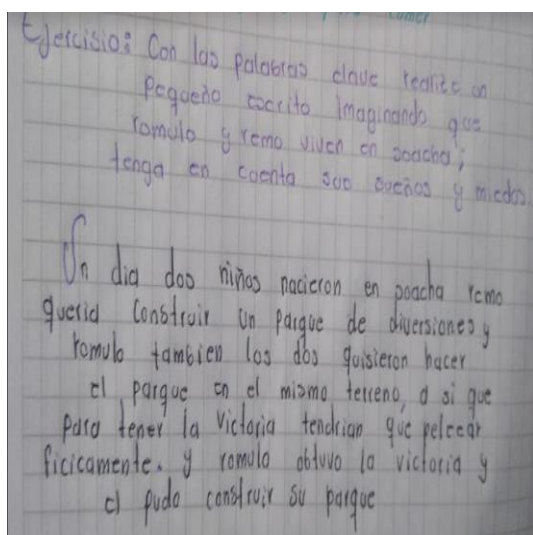 comer
Ejercisio: Con las palabras clave realize un
pequeño escrito imaginando que
romulo y remo viven en soacha;
tenga en cuenta sus sueños y miedos.
Un dia dos niños nacieron en soacha remo
queria construir un parque de diversiones y
romulo tambien los dos quisieron hacer
el parque en el mismo terreno, a si que
para tener la victoria tendrian que peleear
ficicamente. y romulo obtuvo la victoria y
el pudo construir su parque